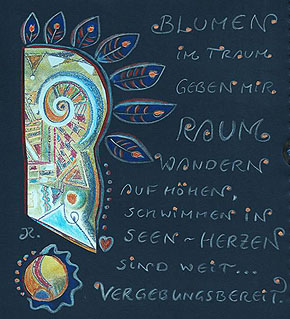 BLUMEN
IM TRAUM
GEBEN MIR
RAUM
WANDERN
AUF HÖHEN,
SCHWIMMEN IN
SEEN ~ HERZEN
SIND WEIT...
VERGEBUNGSBEREIT?
JR.